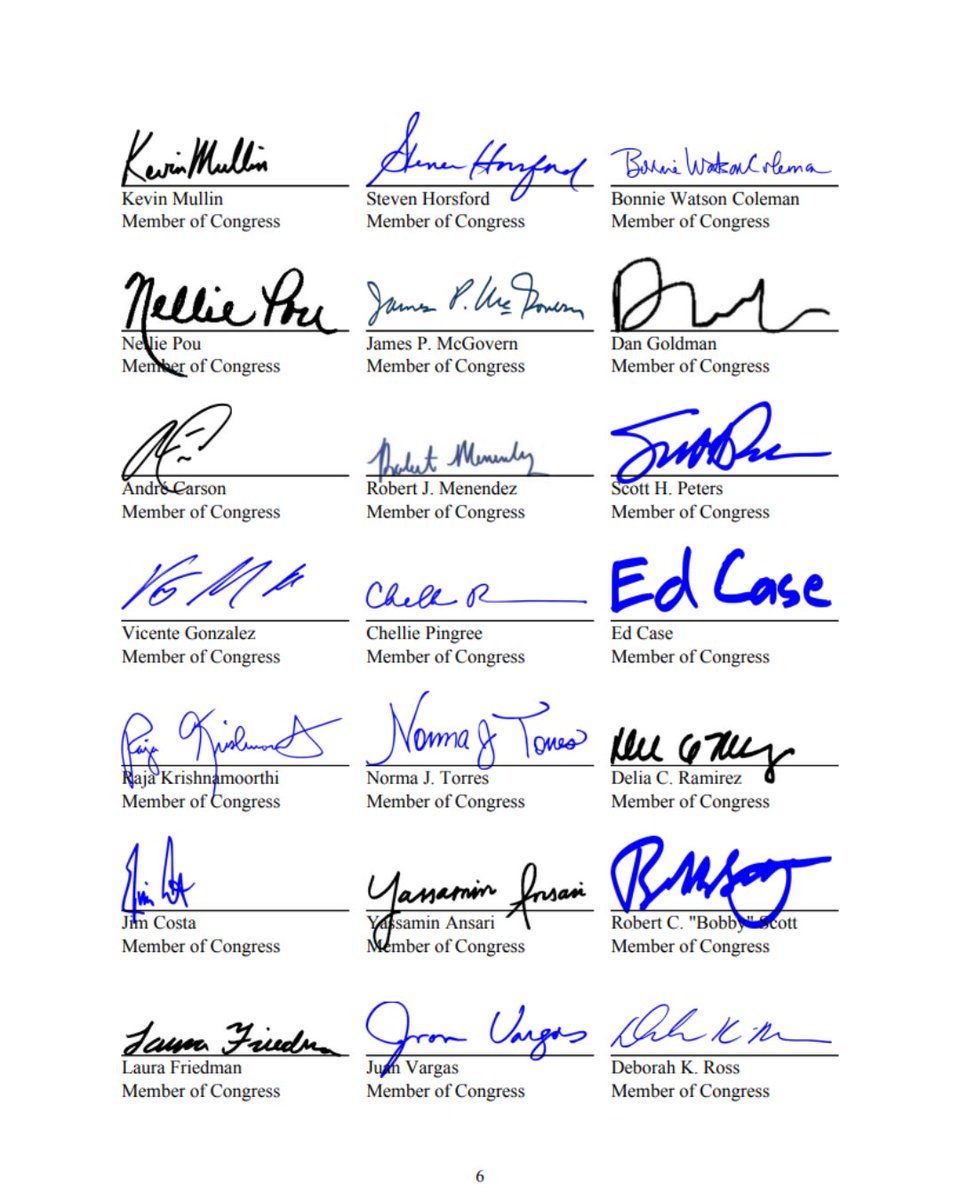 Kevin Mullin
Steven Horsford
Bonnie Watson Coleman
Kevin Mullin
Steven Horsford
Bonnie Watson Coleman
Member of Congress
Member of Congress
Member of Congress
Nellie Pou
James P. McGovern
Nellie Pou
James P. McGovern
Dan Goldman
Member of Congress
Member of Congress
Member of Congress
Robert Menendez
André Carson
Robert J. Menendez
Scott H. Peters
Member of Congress
Member of Congress
Member of Congress
Ed Case
Vicente Gonzalez
Chellie Pingree
Ed Case
Member of Congress
Member of Congress
Member of Congress
Raja Krishnamoorthi
Norma J Torres
Raja Krishnamoorthi
Norma J. Torres
Delia C. Ramirez
Member of Congress
Member of Congress
Member of Congress
Yassamin Ansari
Jim Costa
Yassamin Ansari
Robert C. "Bobby" Scott
Member of Congress
Member of Congress
Member of Congress
Laura Friedman
Juan Vargas
Laura Friedman
Juan Vargas
Deborah K. Ross
Member of Congress
Member of Congress
Member of Congress
6